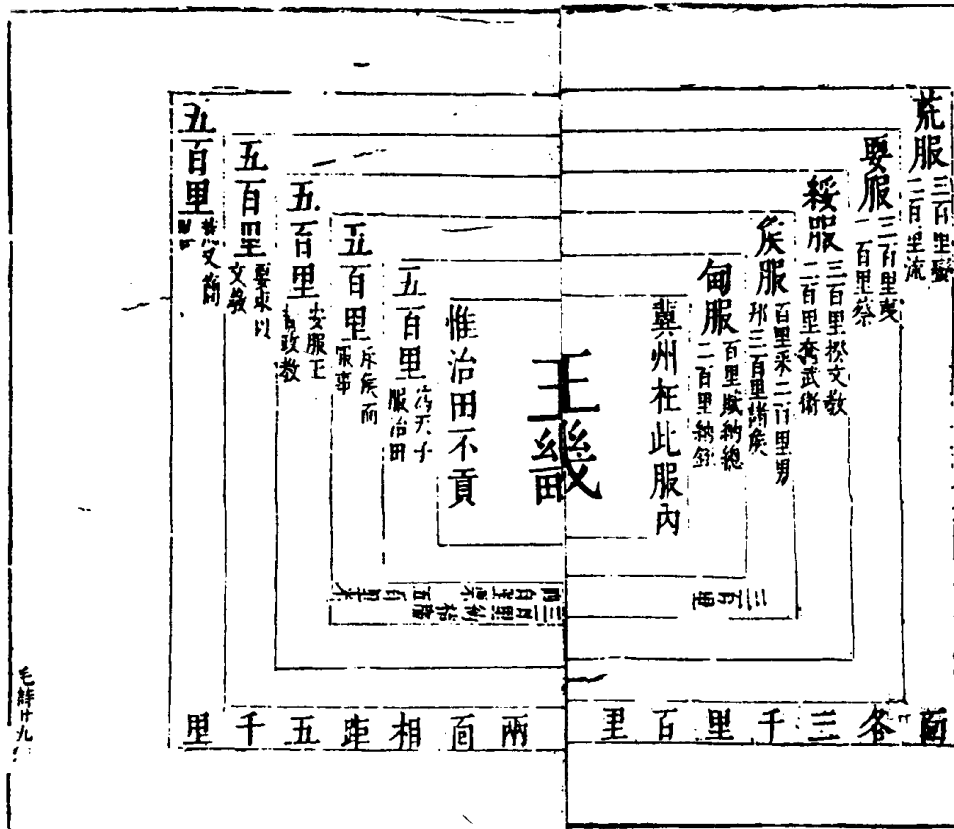 荒服 三百里蠻
二百里流
要服 三百里夷
二百里蔡
綏服 三百里揆文教
二百里奮武衛
侯服 百里采二百里男
邦三百里諸侯
甸服 百里賦納總
二百里納銍
冀州在此服內
王畿
惟治田不貢
五百里 為天子
服治田
五百里 斥侯而
服事
五百里 安服王
者政教
五百里 要束以
文教
五百里 文簡
三百里
三百里
面各三千里百里
兩面相距五千里
毛詩廿九